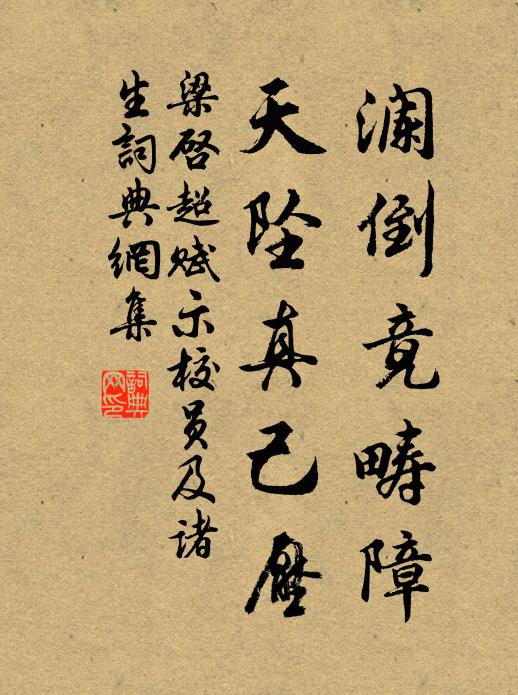 澜倒竟畴障
天坠真己压
梁启超赋示校员及诸
生詞典網集
詞典網印